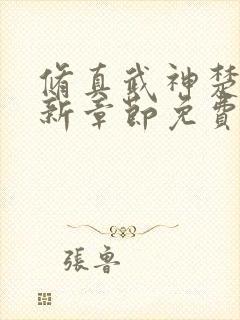 脩真武神楚
新章節免費
張魯